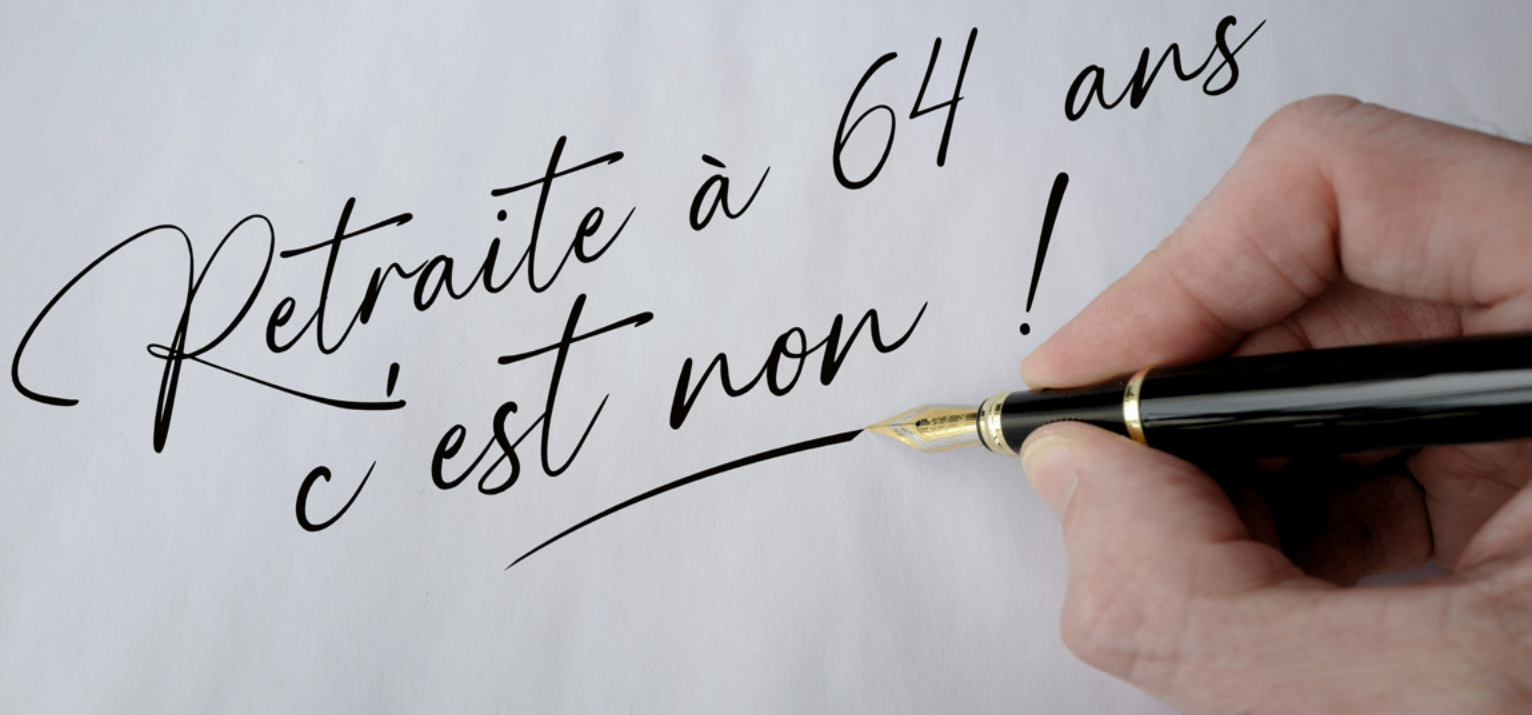 Retraite à 64 ans
c'est non !